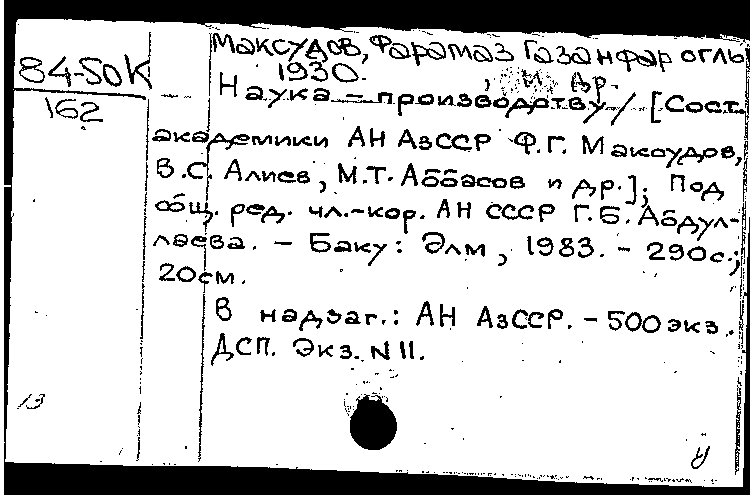 84-50К
162
Максудов, Фарамаз Газанфар оглы
1930. , и др.
Наука – производству / [Сост.
академики АН АзССР Ф.Г. Максудов,
В.С. Алиев, М.Т. Аббасов и др.]; Под
общ. ред. чл.-кор. АН СССР Г.Б. Абдул-
лаева. – Баку: Элм, 1983. – 290с.;
20см.
В надзаг.: АН АзССР. – 500 экз.
ДСП. Экз. N 11.
13
у